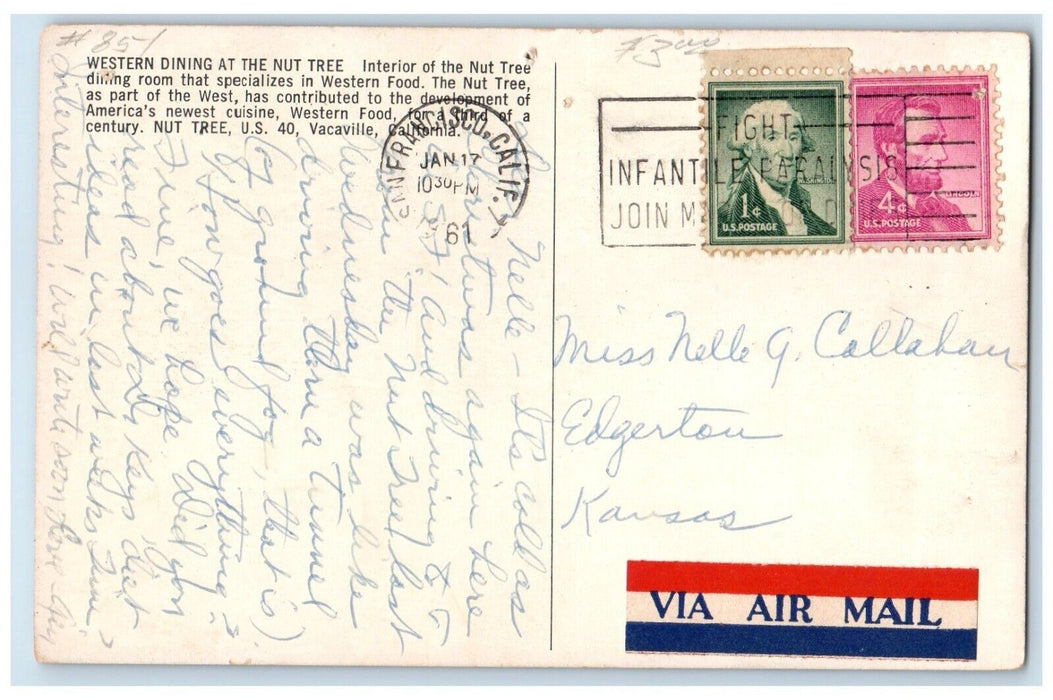 # 851
$3.00
WESTERN DINING AT THE NUT TREE Interior of the Nut Tree
dining room that specializes in Western Food. The Nut Tree,
as part of the West, has contributed to the development of
America's newest cuisine, Western Food, for a third of a
century. NUT TREE, U.S. 40, Vacaville, California.
SAN FRANCISCO, CALIF.
JAN 17
10 30 PM
1961
FIGHT
INFANTILE PARALYSIS
JOIN M
1¢
U.S. POSTAGE
LINCOLN
4¢
U.S. POSTAGE
Nelle - It's cold as
Christmas again here
And driving to &
from the Nut Tree last
Wednesday was like
driving thru a tunnel
(of ground fog, that is)
How goes everything?
Fine, we hope. Did you
read about Dr. Keys' diet
ideas in last week's Time?
Interesting! Will write soon Love
Miss Nelle G. Callahan
Edgerton
Kansas
VIA AIR MAIL